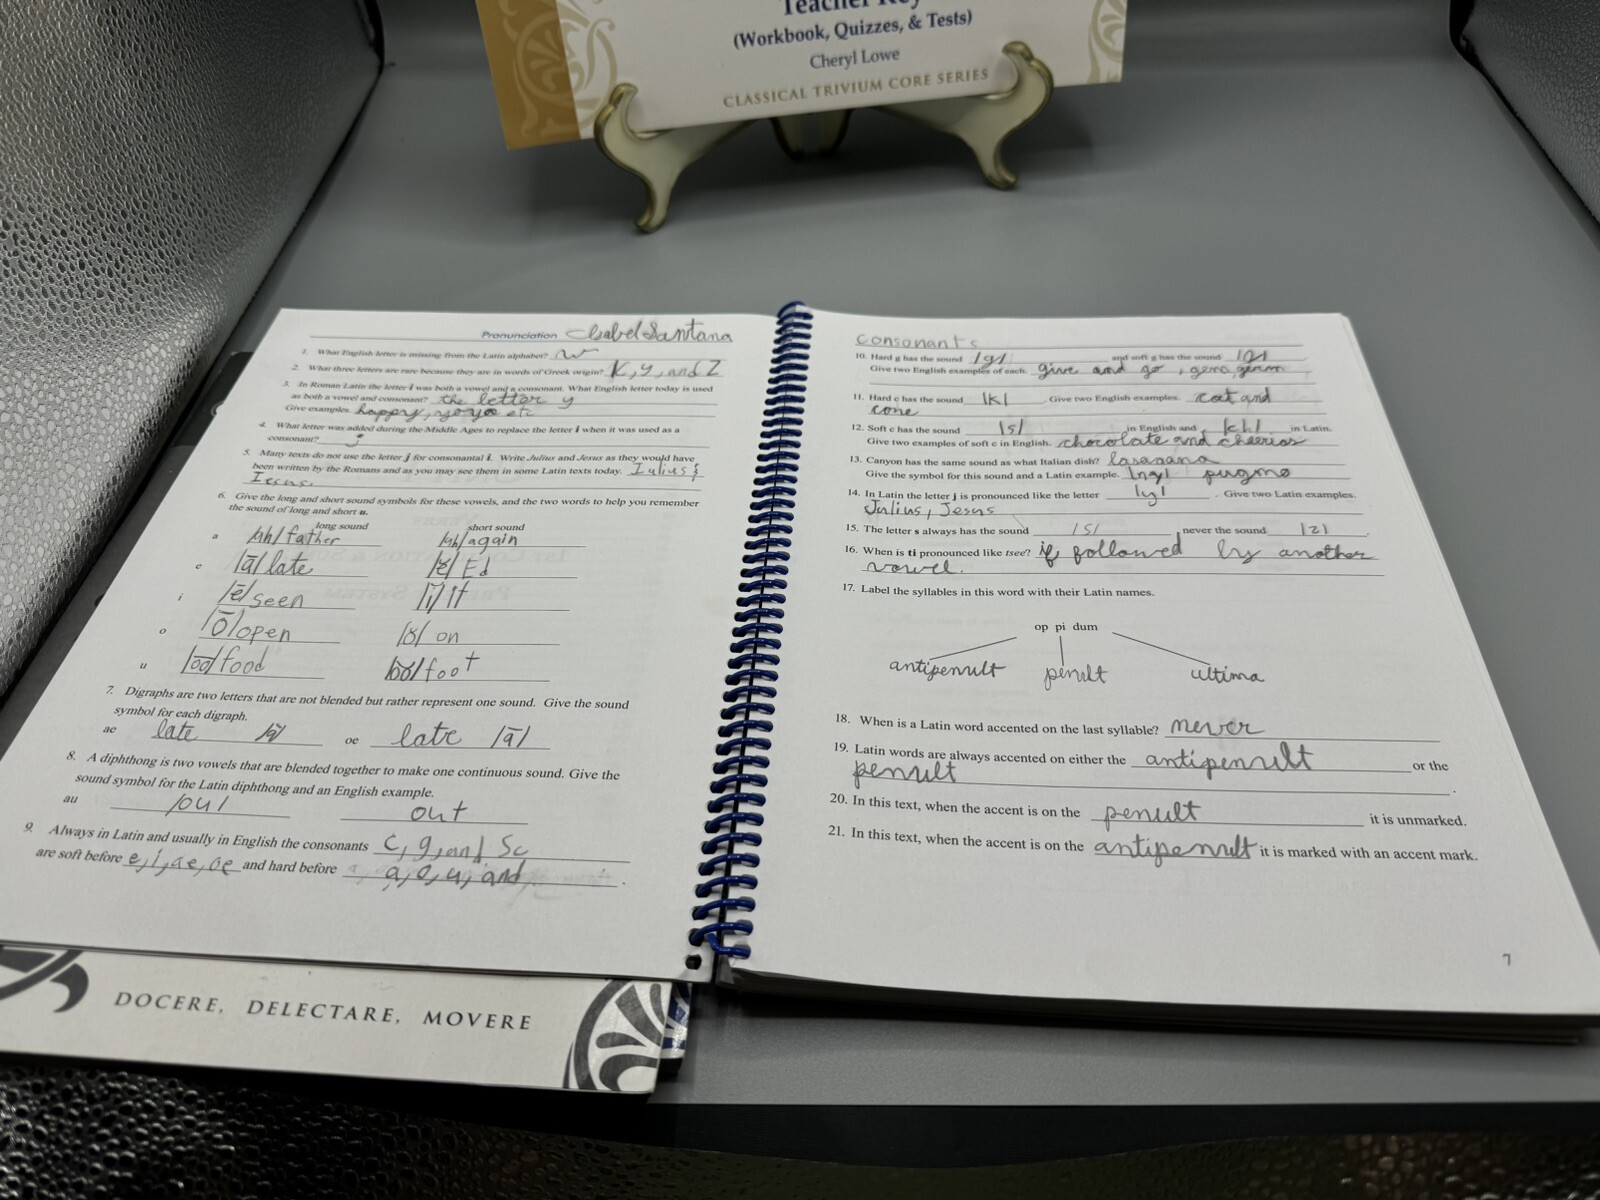 Teacher Key
(Workbook, Quizzes, & Tests)
Cheryl Lowe
CLASSICAL TRIVIUM CORE SERIES
Pronunciation Isabel Santana
1. What English letter is missing from the Latin alphabet? w
2. What three letters are rare because they are in words of Greek origin? K, y, and Z
3. In Roman Latin the letter i was both a vowel and a consonant. What English letter today is used
as both a vowel and consonant? the letter y
Give examples. happy, yoyo etc
4. What letter was added during the Middle Ages to replace the letter i when it was used as a
consonant? j
5. Many texts do not use the letter j for consonantal i. Write Julius and Jesus as they would have
been written by the Romans and as you may see them in some Latin texts today. Iulius &
Iesus.
6. Give the long and short sound symbols for these vowels, and the two words to help you remember
the sound of long and short u.
long sound short sound
a /ah/ father /uh/ again
e /ā/ late /ĕ/ Ed
i /ē/ seen /ĭ/ it
o /ō/ open /ŏ/ on
u /o͞o/ food /o͝o/ foot
7. Digraphs are two letters that are not blended but rather represent one sound. Give the sound
symbol for each digraph.
ae late /ā/ oe late /ā/
8. A diphthong is two vowels that are blended together to make one continuous sound. Give the
sound symbol for the Latin diphthong and an English example.
au /ou/ out
9. Always in Latin and usually in English the consonants c, g, and sc
are soft before e, i, ae, oe and hard before a, o, u, and .
consonants
10. Hard g has the sound /g/ and soft g has the sound
Give two English examples of each. give and go, gem, germ
11. Hard c has the sound /k/ Give two English examples. cat and
cone
12. Soft c has the sound /s/ in English and in Latin.
Give two examples of soft c in English. chocolate and cheerios
13. Canyon has the same sound as what Italian dish? lasagana
Give the symbol for this sound and a Latin example. /ny/ pugmo
14. In Latin the letter j is pronounced like the letter /y/ . Give two Latin examples.
Julius, Jesus
15. The letter s always has the sound /s/ , never the sound /z/ .
16. When is ti pronounced like tsee? if followed by another
vowel.
17. Label the syllables in this word with their Latin names.
op pi dum
antipenult penult ultima
18. When is a Latin word accented on the last syllable? never
19. Latin words are always accented on either the antipenult or the
penult .
20. In this text, when the accent is on the penult it is unmarked.
21. In this text, when the accent is on the antipenult it is marked with an accent mark.
7
DOCERE, DELECTARE, MOVERE